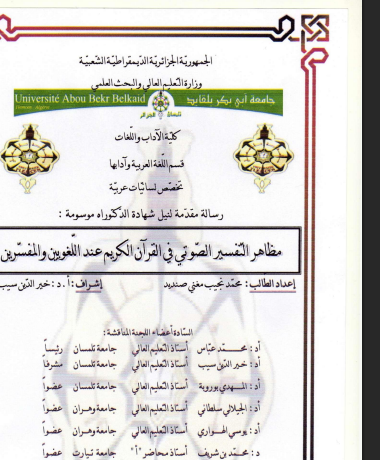 الجمهوريّة الجزائريّة الدّيمقراطيّة الشّعبيّة
وزارة التّعليم العالي والبحث العلمي
Université Abou Bekr Belkaid جامعة أبي بكر بلقايد
تلمسان الجزائر
كليّة الآداب واللّغات
قسم اللّغة العربية وآدابها
تخصّص لسانيّات عربيّة
رسالة مقدّمة لنيل شهادة الدّكتوراه موسومة :
مظاهر التّفسير الصّوتي في القرآن الكريم عند اللّغويين والمفسّرين
إعداد الطالب : محمّد نجيب مغني صنديد إشراف : أ . د : خير الدّين سيب
السّادة أعضاء اللجنة المناقشة :
أد : محمّد عبّاس أستاذ التّعليم العالي جامعة تلمسان رئيساً
أد : خير الدّين سيب أستاذ التّعليم العالي جامعة تلمسان مشرفاً
أد : المهدي بوروبة أستاذ التّعليم العالي جامعة تلمسان عضواً
أد : الجيلالي سلطاني أستاذ التّعليم العالي جامعة وهران عضواً
أد : بوسي الهواري أستاذ التّعليم العالي جامعة وهران عضواً
د : محمّد بن شريف أستاذ محاضر "أ" جامعة تيارت عضواً